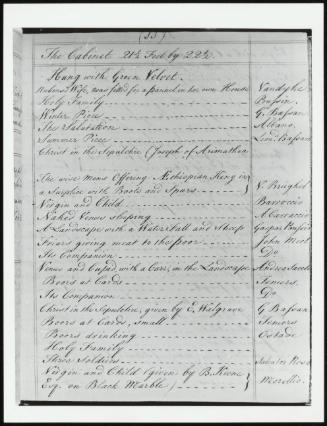 (33)
The Cabinet 21½ Feet by 22½.
Hung with Green Velvet.
Rubens's Wife, now fitted for a pannel in her own House Vandyke
Holy Family Possin.
Winter Piece G. Bassan
The Salutation Albano
Summer Piece Leon. Bassan
Christ in the Sepulchre (Joseph of Arimathea
The wise mens Offering. Æthiopian King in
a Surplice with Boots and Spurs } V. Brughel
Virgin and Child Baroccio
Naked Venus sleeping A Caraccio
A Landscape with a Waterfall and Sheep Gaspar Poussin
Friars giving meat to the poor John Meel
Its Companion Do
Venus and Cupid with a Carr, in the Landscape Andrea Sacchi
Boors at Cards Teniers.
Its Companion Do
Christ in the Sepulchre, given by E. Walgrave G Bassan
Boors at Cards, small Teniers
Boors drinking Ostade
Holy Family
Three Soldiers Salvator Rosa
Virgin and Child (given by B. Keene
Esq. on Black Marble) } Morellio.